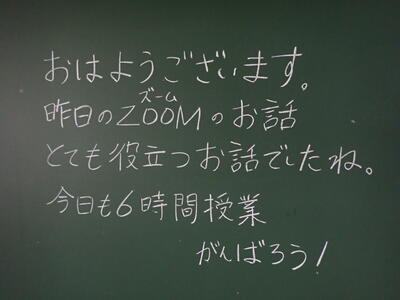 おはようございます。
ズーム
昨日のZOOMのお話
とても役立つお話でしたね。
今日も6時間授業
がんばろう!